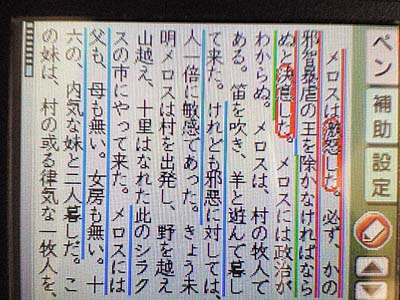 メロスは激怒した。必ず、かの
邪智暴虐の王を除かなければなら
ぬと決意した。メロスには政治が
わからぬ。メロスは、村の牧人で
ある。笛を吹き、羊と遊んで暮し
て来た。けれども邪悪に対しては、
人一倍に敏感であった。きょう未
明メロスは村を出発し、野を越え
山越え、十里はなれた此のシラク
スの市にやって来た。メロスには
父も、母も無い。女房も無い。十
六の、内気な妹と二人暮しだ。こ
の妹は、村の或る律気な一牧人を、
ペン
補助
設定